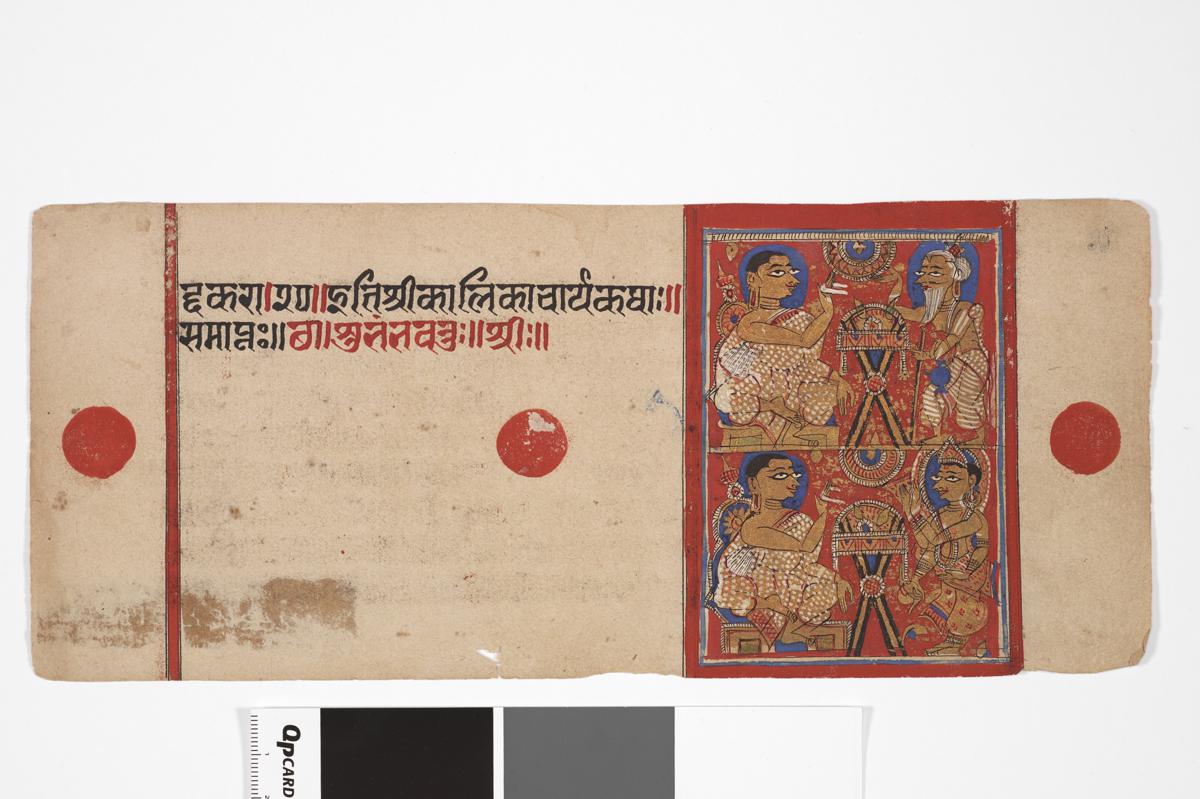 द्दकरा॥२०॥इतिश्रीकालिकाचार्यकथाः॥
समाप्तः॥छ॥शुभंभवतुः॥श्रीः॥
QPCARD